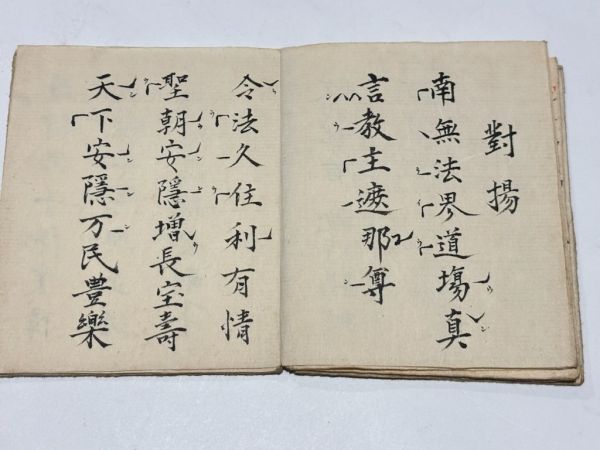 對揚
南無法界道場真
言教主遮那尊
令法久住利有情
聖朝安隱增長宝壽
天下安隱万民豊樂